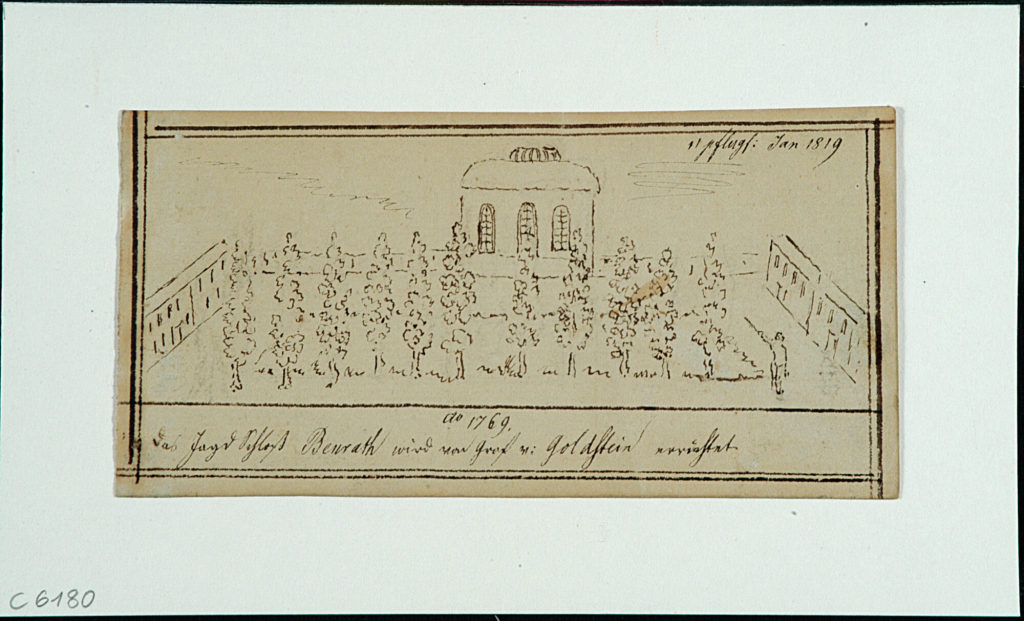 pflugs: Jan 1819
do 1769.
Das Jagd Schloß Benrath wird von Graf v: Goldstein errichtet
C 6180